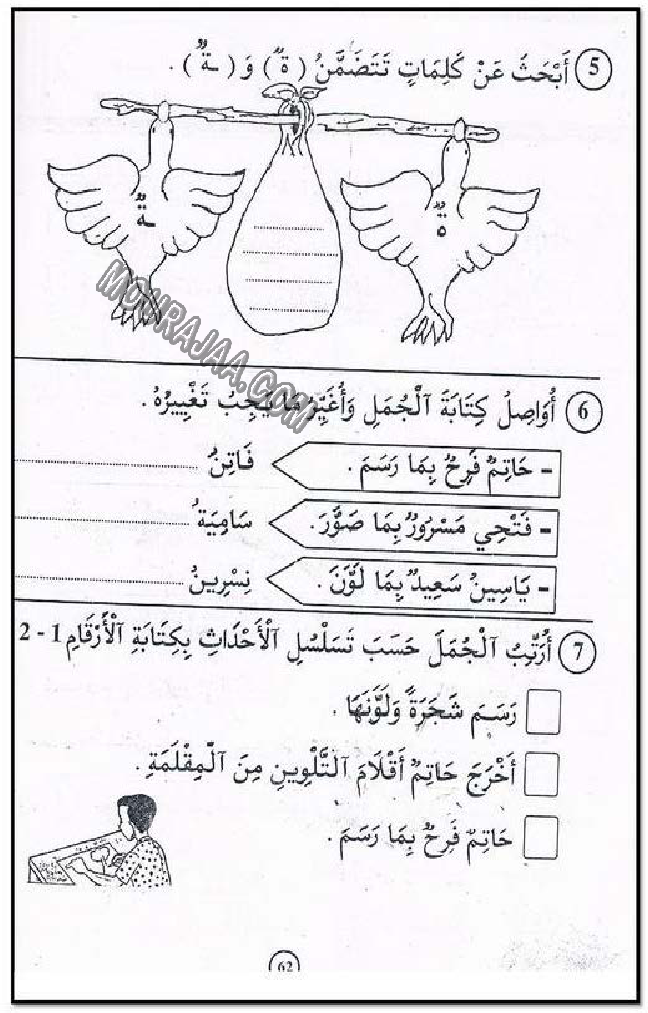 5 أَبْحَثُ عَنْ كَلِمَاتٍ تَتَضَمَّنُ (ةٌ) وَ (ـةٌ) .
ـةٌ
ةٌ
MOURAJAA.COM
6 أُوَاصِلُ كِتَابَةَ ٱلْجُمَلِ وَأُغَيِّرُ مَا يَجِبُ تَغْيِيرُهُ .
- حَاتِمٌ فَرِحٌ بِمَا رَسَمَ . فَاتِنُ ....................
- فَتْحِي مَسْرُورٌ بِمَا صَوَّرَ . سَامِيَةُ ....................
- يَاسِينُ سَعِيدٌ بِمَا لَوَّنَ . نِسْرِينُ ....................
7 أُرَتِّبُ ٱلْجُمَلَ حَسَبَ تَسَلْسُلِ ٱلْأَحْدَاثِ بِكِتَابَةِ ٱلْأَرْقَامِ 1 - 2
رَسَمَ شَجَرَةً وَلَوَّنَهَا .
أَخْرَجَ حَاتِمٌ أَقْلَامَ ٱلتَّلْوِينِ مِنَ ٱلْمِقْلَمَةِ .
حَاتِمٌ فَرِحٌ بِمَا رَسَمَ .
62